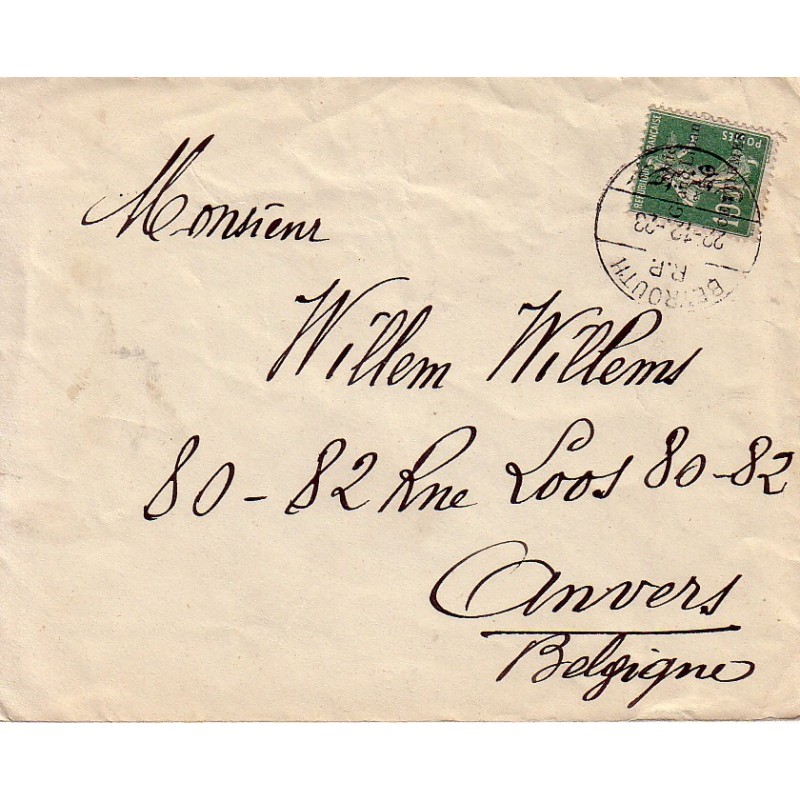 REPUBLIQUE FRANÇAISE
POSTES
15
22-12-23
R.P.
BEYROUTH
Monsieur
Willem Willems
80-82 Rue Loos 80-82
Anvers
Belgique